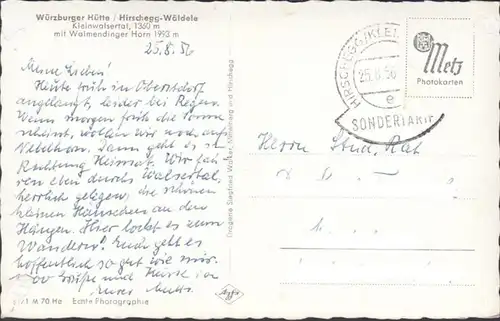 Würzburger Hütte / Hirschegg-Wäldele
Kleinwalsertal, 1360 m
mit Walmendinger Horn 1993 m
25.8.56
Meine Lieben!
Heute früh in Oberstdorf
angelangt, leider bei Regen.
Wenn morgen früh die Sonne
scheint, wollen wir noch aufs
Nebelhorn. Dann geht es in
Richtung Heimat. Wir fah-
ren eben durchs Walsertal,
herrlich gelegen, die schönen
kleinen Häuschen an den
Hängen. Hier lockt es zum
Wandern! Euch geht es
hoffentlich so gut wie mir.
100 Grüße und Küsse von
Eurer
M 70 He Echte Photographie
Drogerie Siegfried Walker, Mittelberg und Hirschegg
Agfa
HIRSCHEGG, KLEI
25.8.56
e
SONDERTARIF
Metz
Photokarten
Herrn Stud. Rat